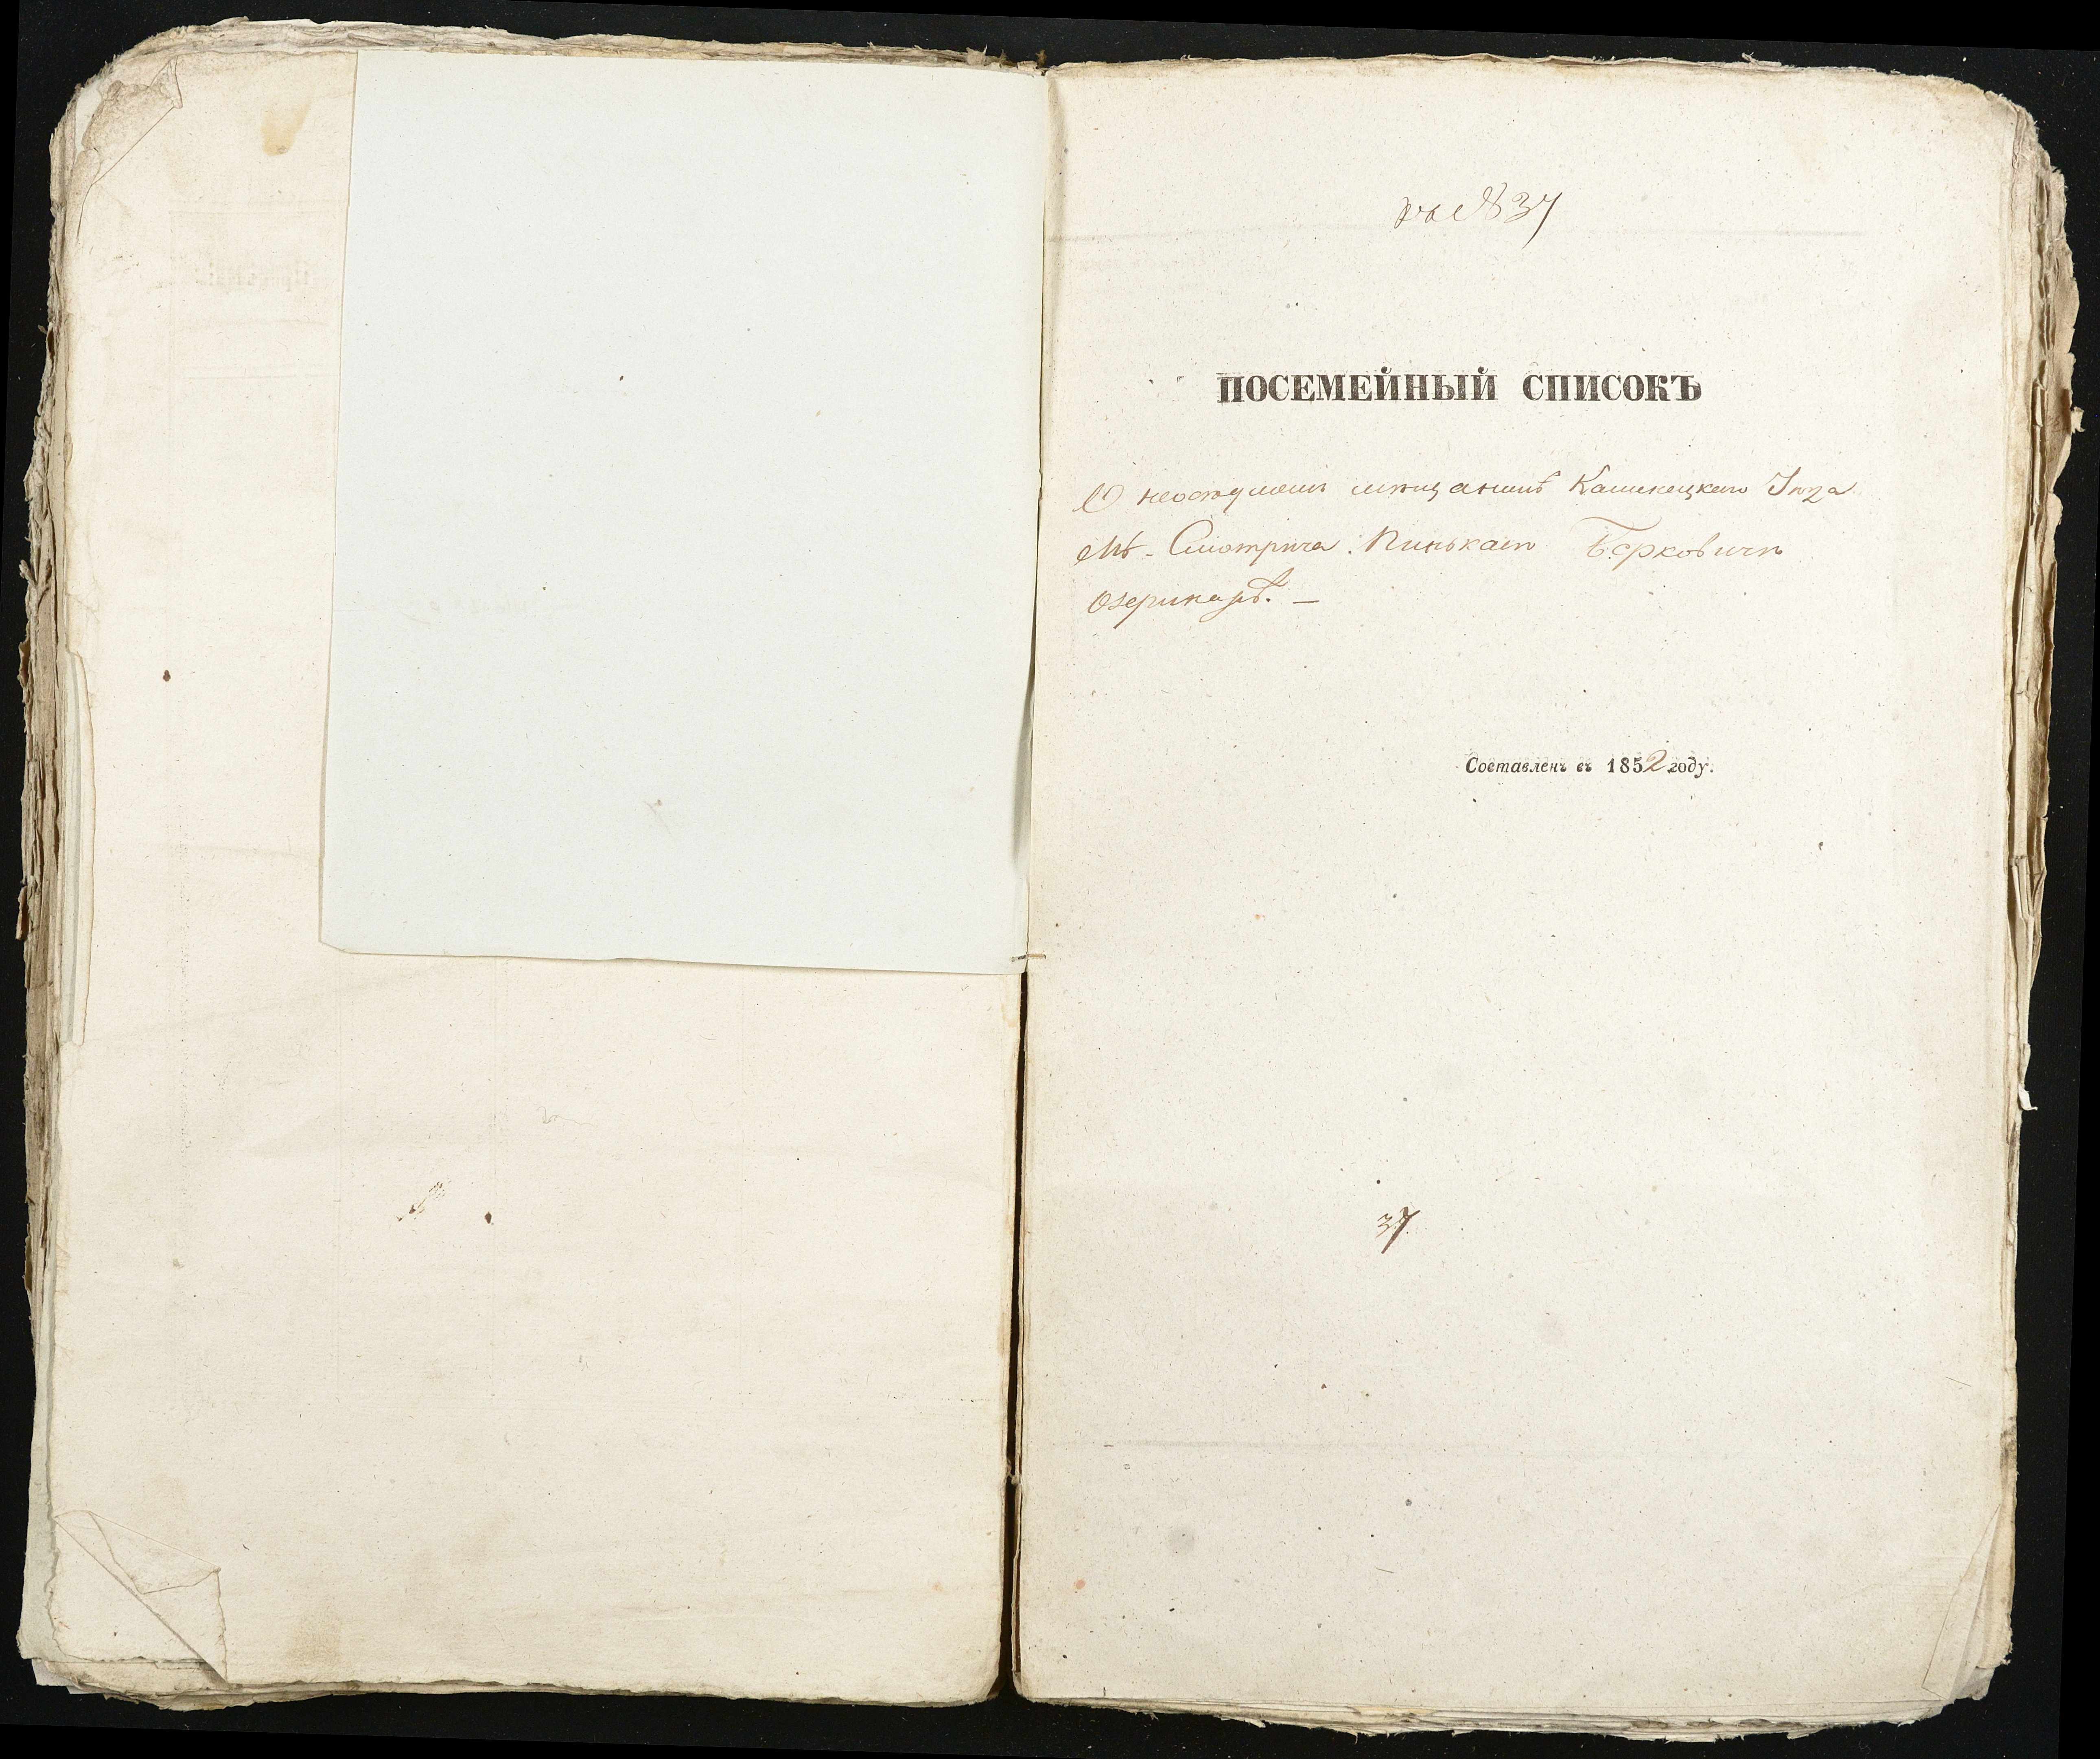 къ № 37
ПОСЕМЕЙНЫЙ СПИСОКЪ
О неоседломъ мещанинѣ Каменецкаго Уезда
М. Смотрича Пинькасѣ Берковичѣ
Озерикарѣ. —
Составленъ въ 1852 году.
37